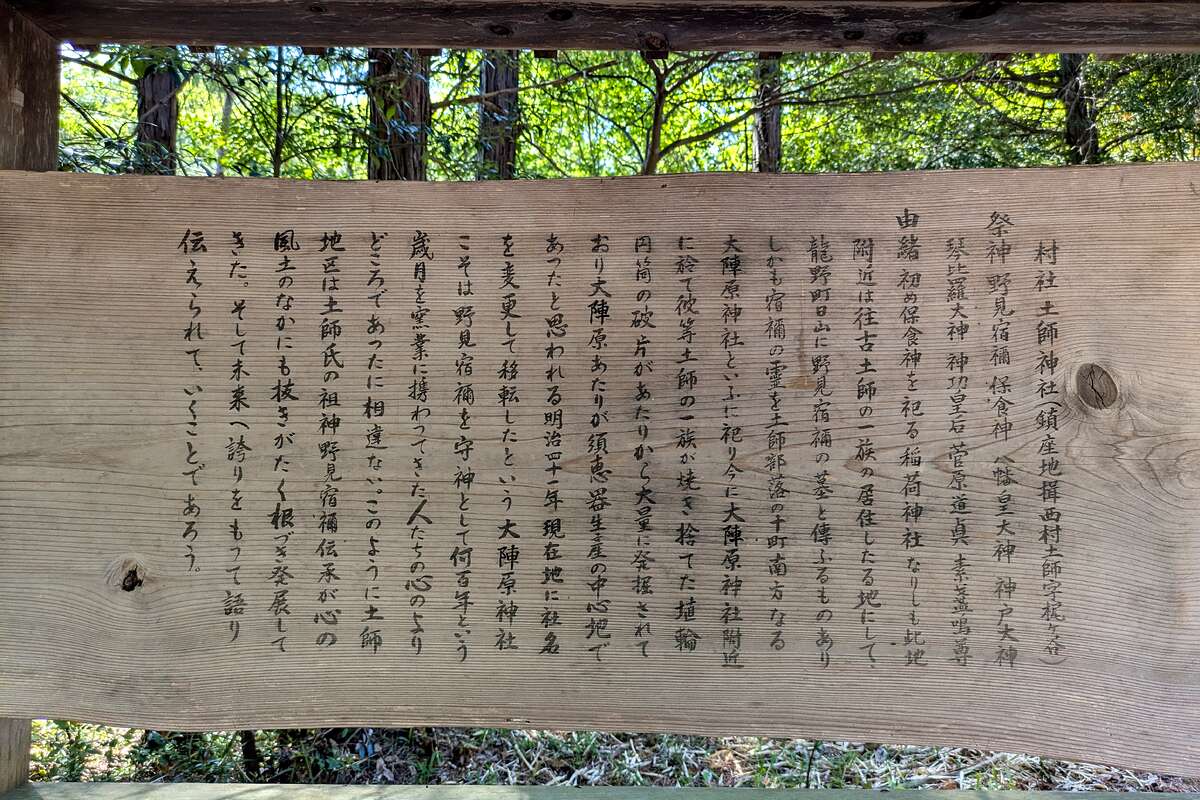 村社 土師神社(鎮座地揖西村土師字梶ケ谷)
祭神 野見宿禰 保食神 八幡皇大神 神戸大神
琴比羅大神 神功皇后 菅原道真 素盞嗚尊
由緒 初め保食神を祀る稲荷神社なりしも此地
附近は往古土師の一族の居住したる地にして、
龍野町日山に野見宿禰の墓と傳ふるものあり
しかも宿禰の霊を土師部落の千町南方なる
大陣原神社といふに祀り今に大陣原神社附近
に於て彼等土師の一族が焼き捨てた埴輪
円筒の破片があたりから大量に発掘されて
おり大陣原あたりが須恵器生産の中心地で
あったと思われる明治四十一年現在地に社名
を変更して移転したという大陣原神社
こそは野見宿禰を守神として何百年という
歳月を窯業に携わってきた人たちの心のより
どころであったに相違ない。このように土師
地区は土師氏の祖神野見宿禰伝承が心の
風土のなかにも抜きがたく根づき発展して
きた。そして未来へ誇りをもって語り
伝えられて、いくことであろう。